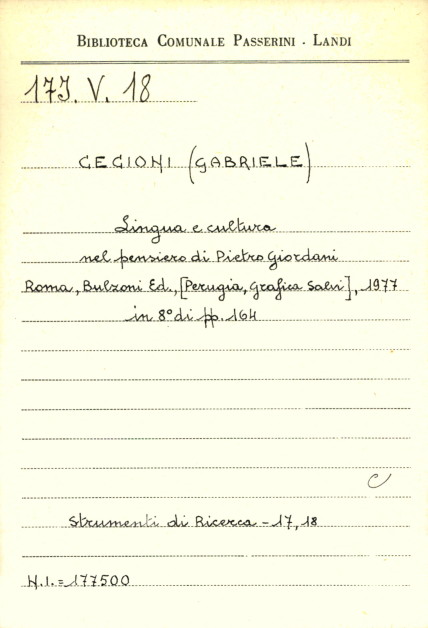 BIBLIOTECA COMUNALE PASSERINI - LANDI
17J. V. 18
CECIONI (GABRIELE)
Lingua e cultura
nel pensiero di Pietro Giordani
Roma, Bulzoni Ed., [Perugia, Grafica Salvi], 1977
in 8° di pp. 164
C
Strumenti di Ricerca - 17, 18
N.I. = 177500